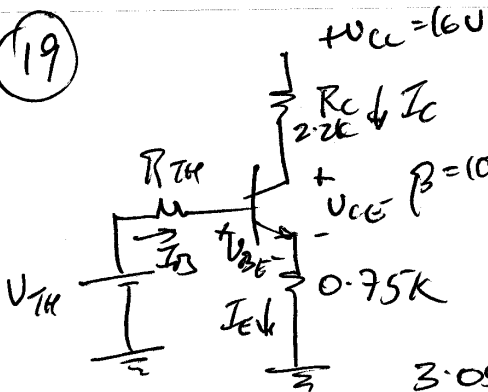 19
+VCC = 16V
RC ↓ IC
2.2K
RTH
+
VCE
β = 10
-
→
IB
+ VBE -
VTH
0.75K
IE ↓
3.05